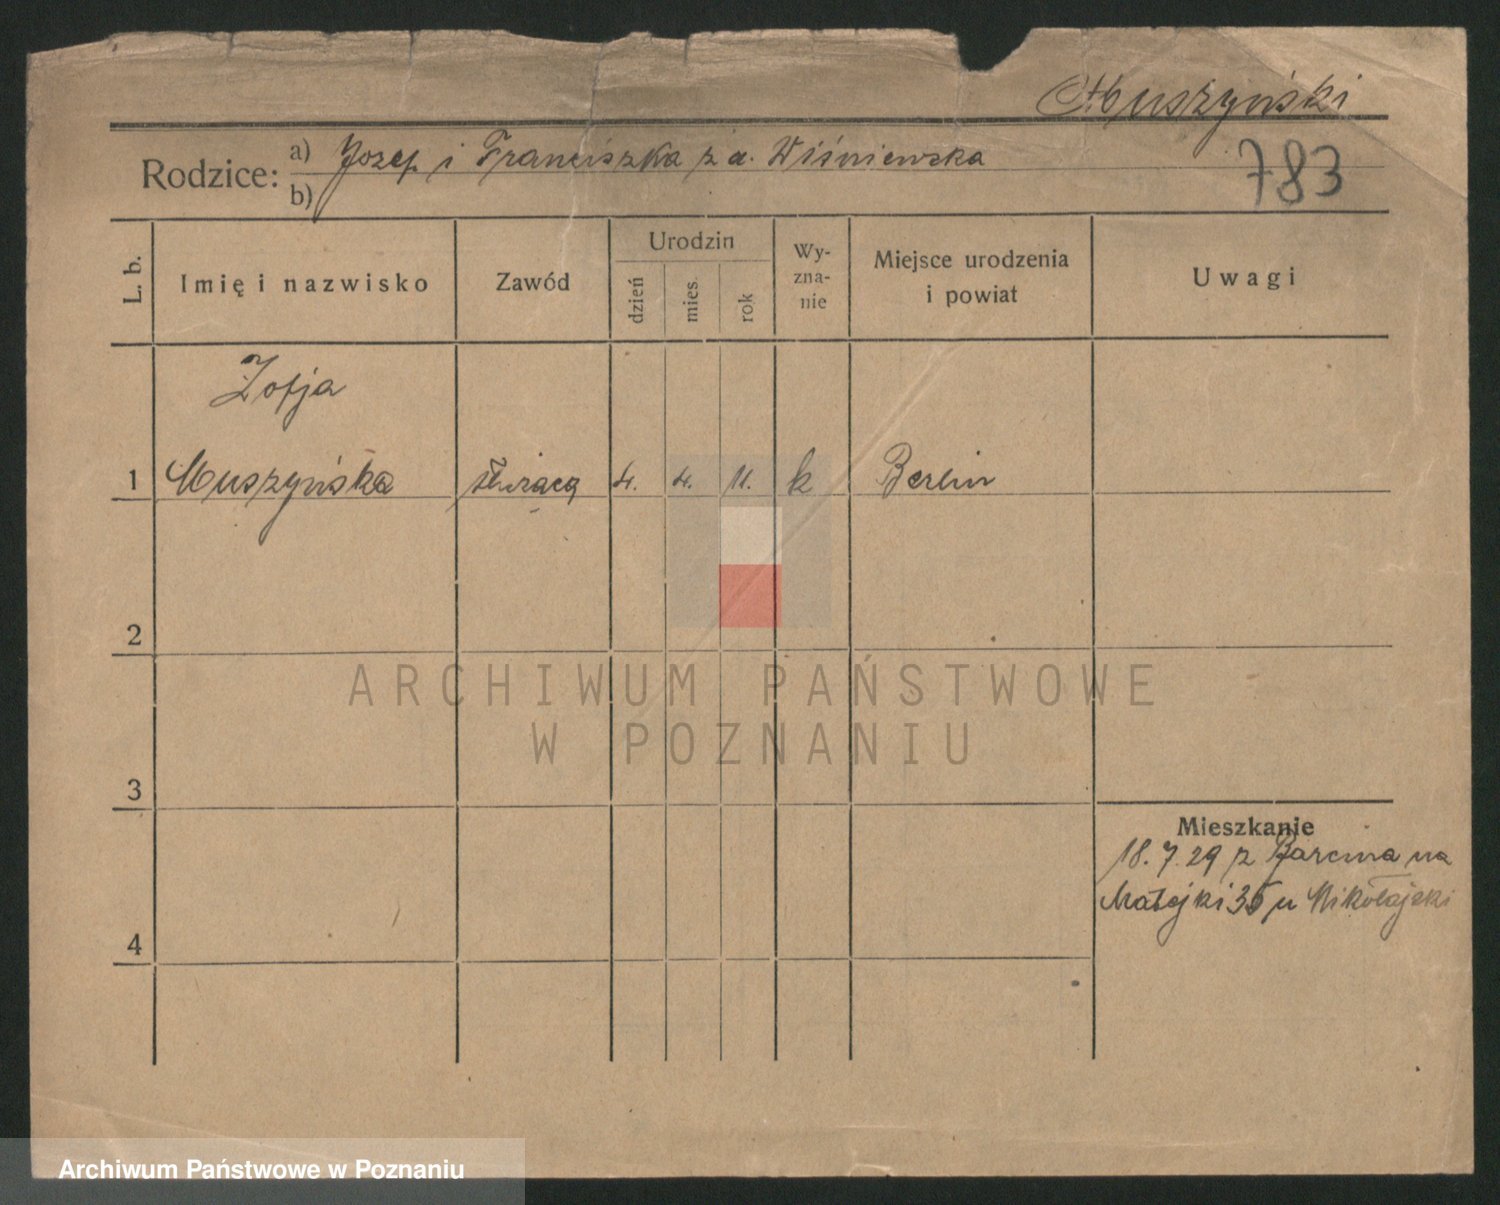 Muszyński
Rodzice: a) Jozef i Franciszka z d. Wiśniewska
b)
783
L. b.
Imię i nazwisko
Zawód
Urodzin
dzień
mies.
rok
Wy-
zna-
nie
Miejsce urodzenia
i powiat
Uwagi
Zofja
1 Muszyńska służąca 4. 4. 11. k Berlin
2
3
4
Mieszkanie
18.7.29 z Barcina na
Matejki 35 u Mikołajski
ARCHIWUM PAŃSTWOWE
W POZNANIU
Archiwum Państwowe w Poznaniu